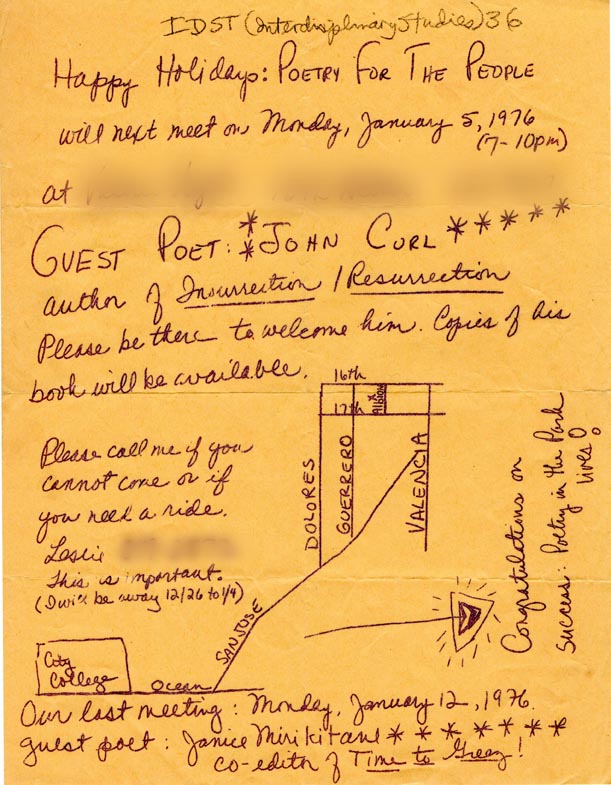 IDST (Interdisiplinary Studies) 36
Happy Holidays: POETRY FOR THE PEOPLE
will next meet on Monday, January 5, 1976
(7-10pm)
at
GUEST POET: ** JOHN CURL *****
author of Insurrection / Resurrection
Please be there to welcome him. Copies of his
book will be available.
16th
17th
Albion
DOLORES
GUERRERO
VALENCIA
Please call me if you
cannot come or if
you need a ride.
Leslie
This is important.
(I will be away 12/26 to 1/4)
SAN JOSE
City
College
Ocean
Congratulations on
success: Poetry in the Park
lives!
Our last meeting: Monday, January 12, 1976.
guest poet: Janice Mirikitani *******
co-editor of Time to Greez!